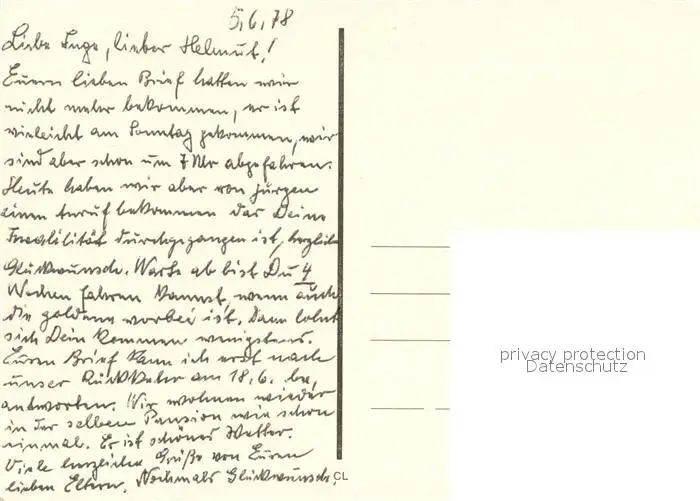 5.6.78
Liebe Inge, lieber Helmut!
Euern lieben Brief hatten wir
nicht mehr bekommen, er ist
vieleicht am Sonntag gekommen, wir
sind aber schon um 7 Uhr abgefahren.
Heute haben wir aber von Jürgen
einen Anruf bekommen das Deine
Invalität durchgegangen ist, herzlich
Glückwunsch. Warte ab bist Du 4
Wochen fahren kannst, wenn auch
die goldene vorbei ist. Dann lohnt
sich Dein Kommen wenigstens.
Euren Brief kann ich erst nach
unser Rückkehr am 18.6. be,
antworten. Wir wohnen wieder
in der selben Pension wie schon
einmal. Es ist schönes Wetter.
Viele herzlichen Grüße von Euren
lieben Eltern. Nochmals Glückwunsch.
CL
privacy protection
Datenschutz